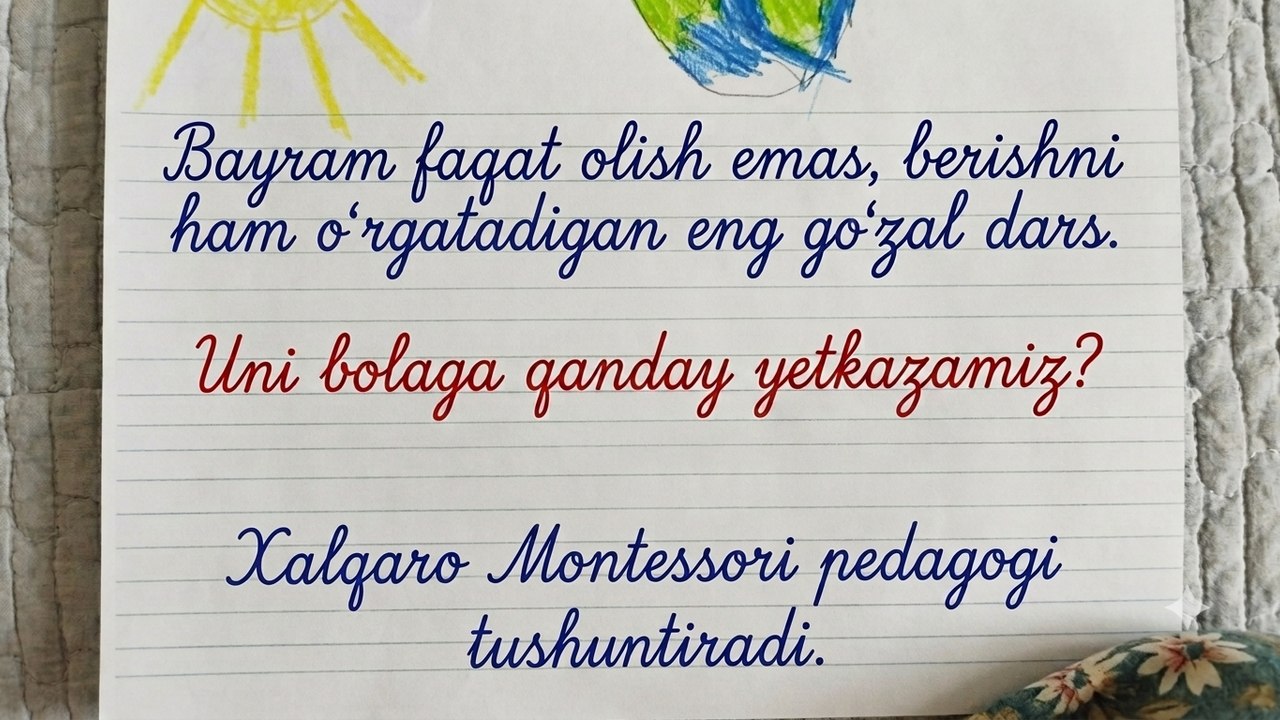 Bayram faqat olish emas, berishni
ham o‘rgatadigan eng go‘zal dars.
Uni bolaga qanday yetkazamiz?
Xalqaro Montessori pedagogi
tushuntiradi.